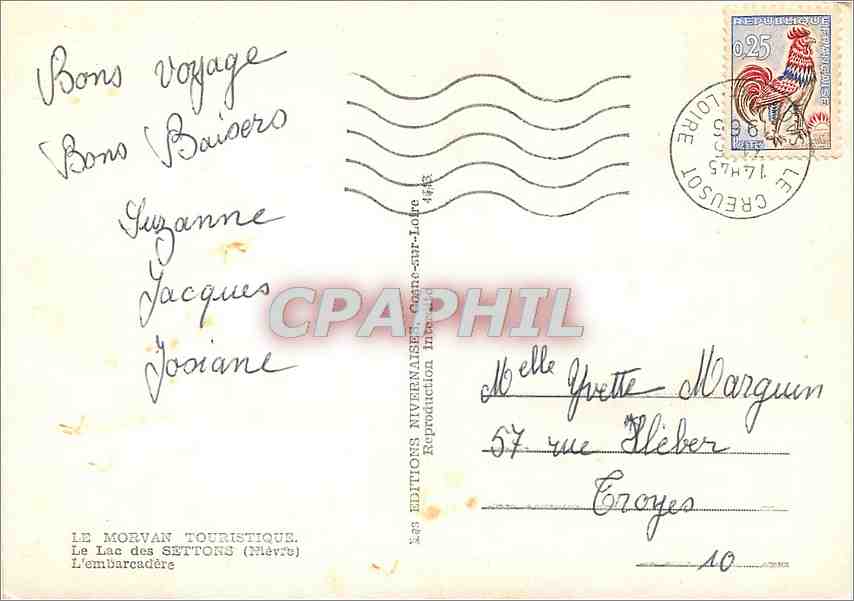 Bons voyage
Bons Baisers
Suzanne
Jacques
Josiane
LE MORVAN TOURISTIQUE.
Le Lac des SETTONS (Nièvre)
L'embarcadère
Les EDITIONS NIVERNAISES, Cosne-sur-Loire
Reproduction Interdite
CPAPHIL
REPUBLIQUE
FRANCAISE
0,25
POSTES
LE CREUSOT
LOIRE
14H45
Melle Yvette Marguin
57 rue Kléber
Troyes
10